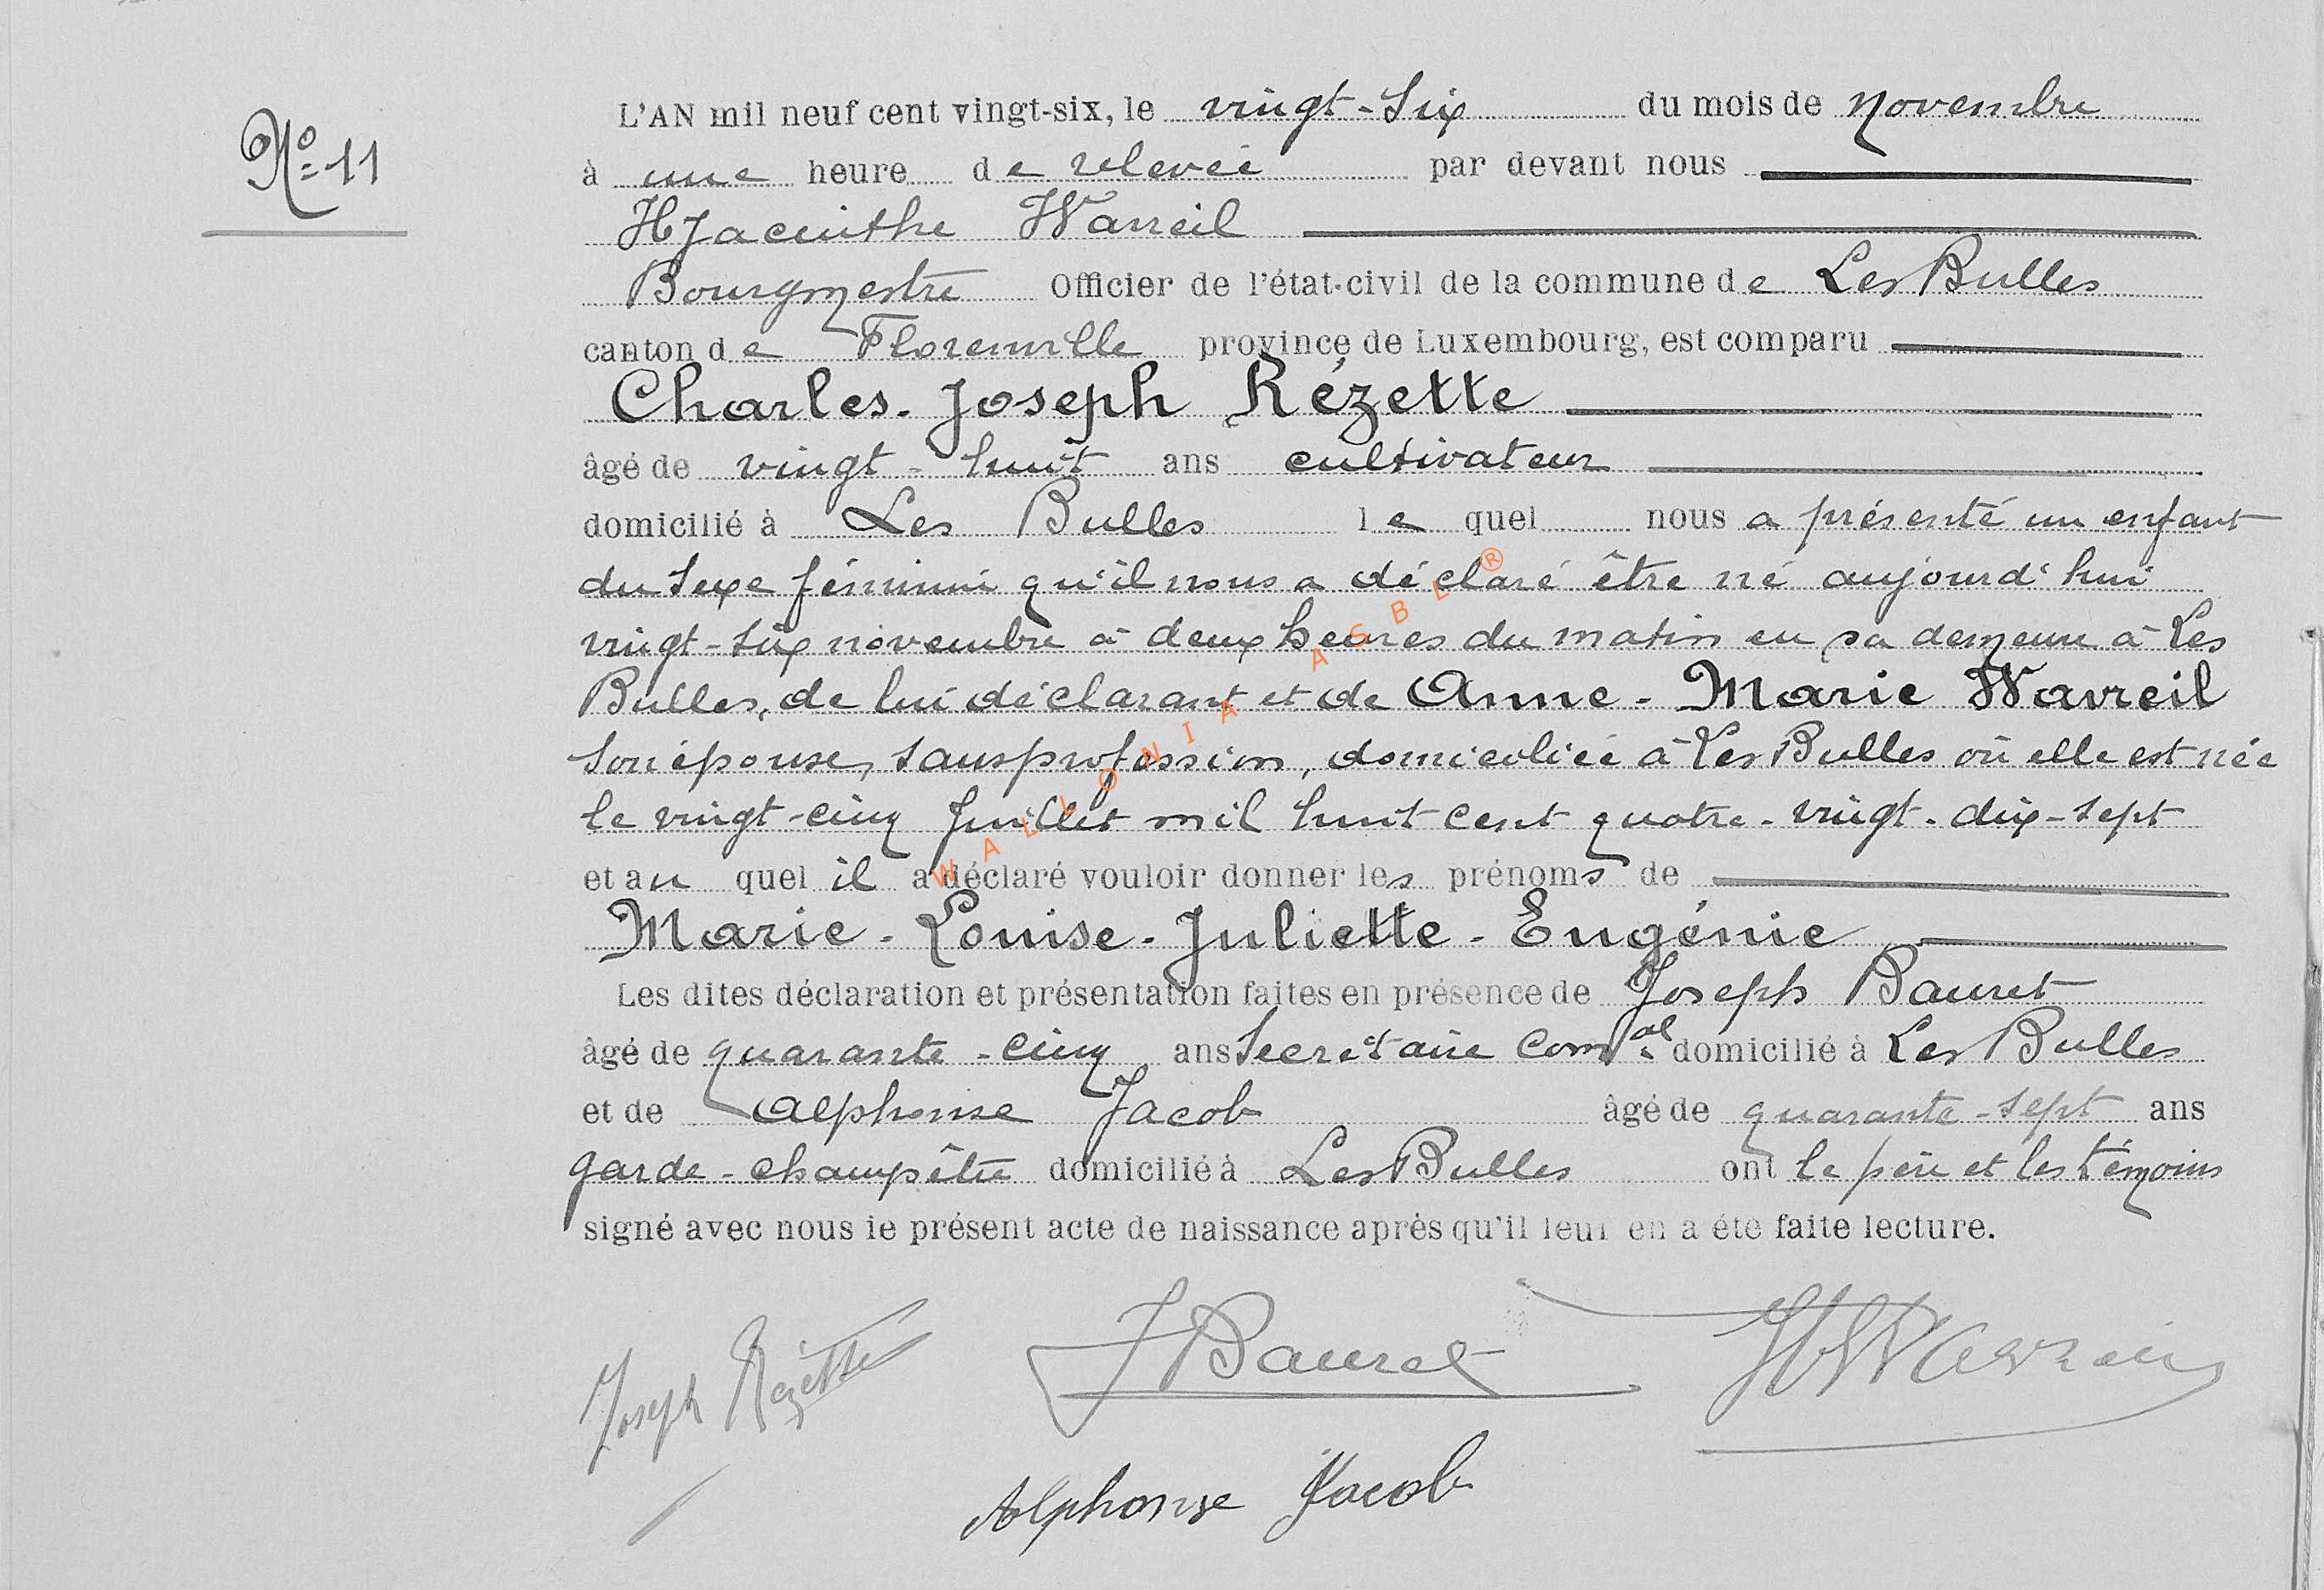 N° 11
L'AN mil neuf cent vingt-six, le vingt-six du mois de novembre
à une heure de relevée par devant nous
Hyacinthe Wavreil
Bourgmestre Officier de l'état-civil de la commune de Les Bulles
canton de Florenville province de Luxembourg, est comparu
Charles-Joseph Rézette
âgé de vingt-huit ans cultivateur
domicilié à Les Bulles lequel nous a présenté un enfant
du sexe féminin qu'il nous a déclaré être né aujourd'hui
vingt-six novembre à deux heures du matin en sa demeure à Les
Bulles, de lui déclarant et de Anne-Marie Wavreil
son épouse, sans profession, domiciliée à Les Bulles où elle est née
le vingt-cinq Juillet mil huit cent quatre-vingt-dix-sept
et auquel il a déclaré vouloir donner les prénoms de
Marie-Louise-Juliette-Eugénie
Les dites déclaration et présentation faites en présence de Joseph Bauret
âgé de quarante-cinq ans secrétaire com.al domicilié à Les Bulles
et de Alphonse Jacob âgé de quarante-sept ans
garde-champêtre domicilié à Les Bulles ont le père et les témoins
signé avec nous le présent acte de naissance après qu'il leur en a été faite lecture.
Joseph Rézette J Bauret H Wavreil
Alphonse Jacob
WALLONIA ASBL ®